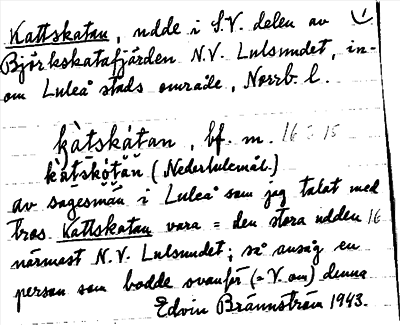 Kattskatan, udde i S.V. delen av
Björkskatafjärden N.V. Lulsundet, in-
om Luleå stads område, Norrb. l.
kàtskàtan, bf. m. 16:15
kàtskòtăn (Nederlulemål)
av sagesmän i Luleå som jag talat med
tros Kattskatan vara = den stora udden 16
närmast N.V. Lulsundet; så ansåg en
person som bodde ovanför (= V. om) denna
Edvin Brännström 1943.